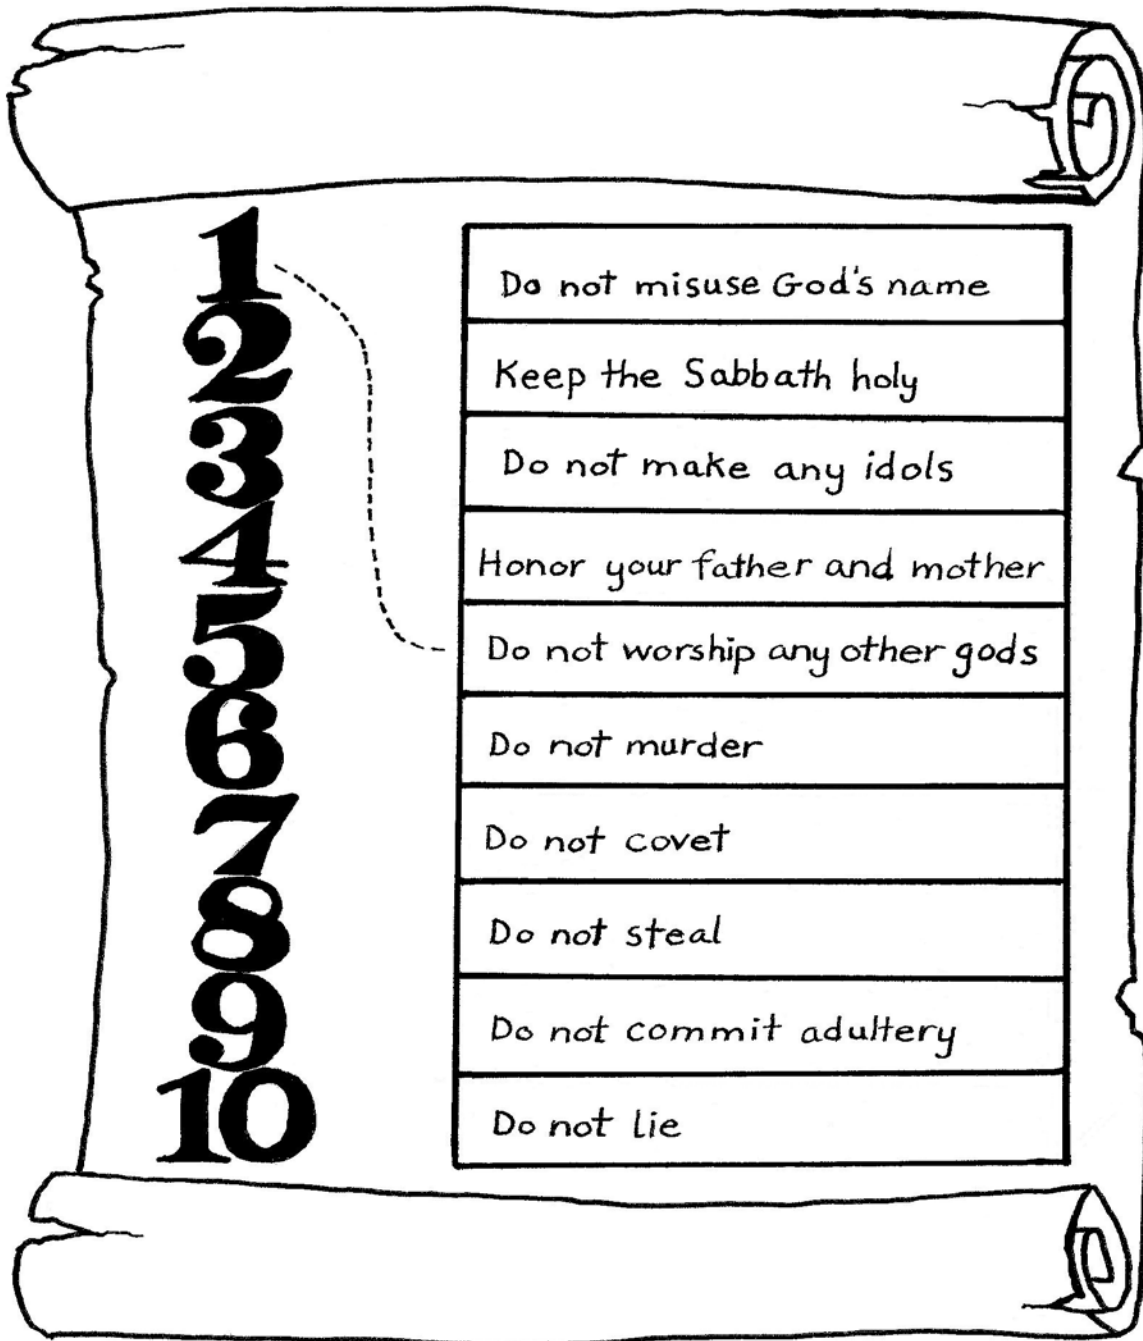 1
2
3
4
5
6
7
8
9
10
Do not misuse God's name
Keep the Sabbath holy
Do not make any idols
Honor your father and mother
Do not worship any other gods
Do not murder
Do not covet
Do not steal
Do not commit adultery
Do not lie